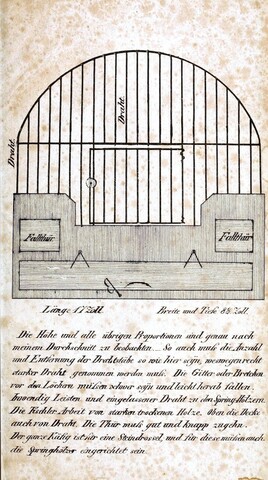 Draht.
Draht.
Fallthür
Fallthür
Länge 17 Zoll.
Breite und Tiefe 8½ Zoll.
Die Höhe und alle übrigen Proportionen sind genau nach
meinem Durchschnitt zu beobachten. So auch muß die Anzahl
und Entfernung der Drahtstäbe so wie hier seyn, weswegen recht
starker Draht genommen werden muß. Die Gitter oder Bretchen
vor den Löchern müßen schwer seyn und leicht herab fallen.
Inwendig Leisten und eingelassener Draht zu den Spring Hölzer.
Die Tischler Arbeit von starken trockenen Holze. Oben die Decke
auch von Draht. Die Thür muß gut und knapp zugehn.
Der ganze Käfig ist für eine Steindrossel, und für diese müßen auch
die Springhölzer eingerichtet sein.